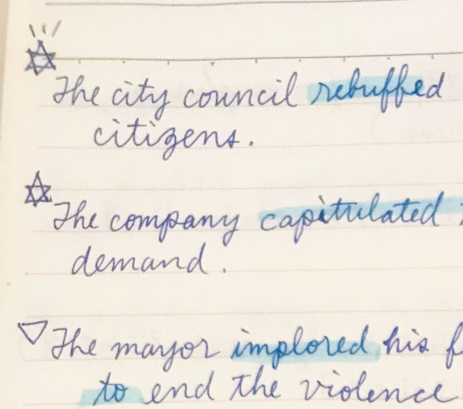 The city council rebuffed
citizens.
The company capitulated
demand.
The mayor implored his
to end the violence